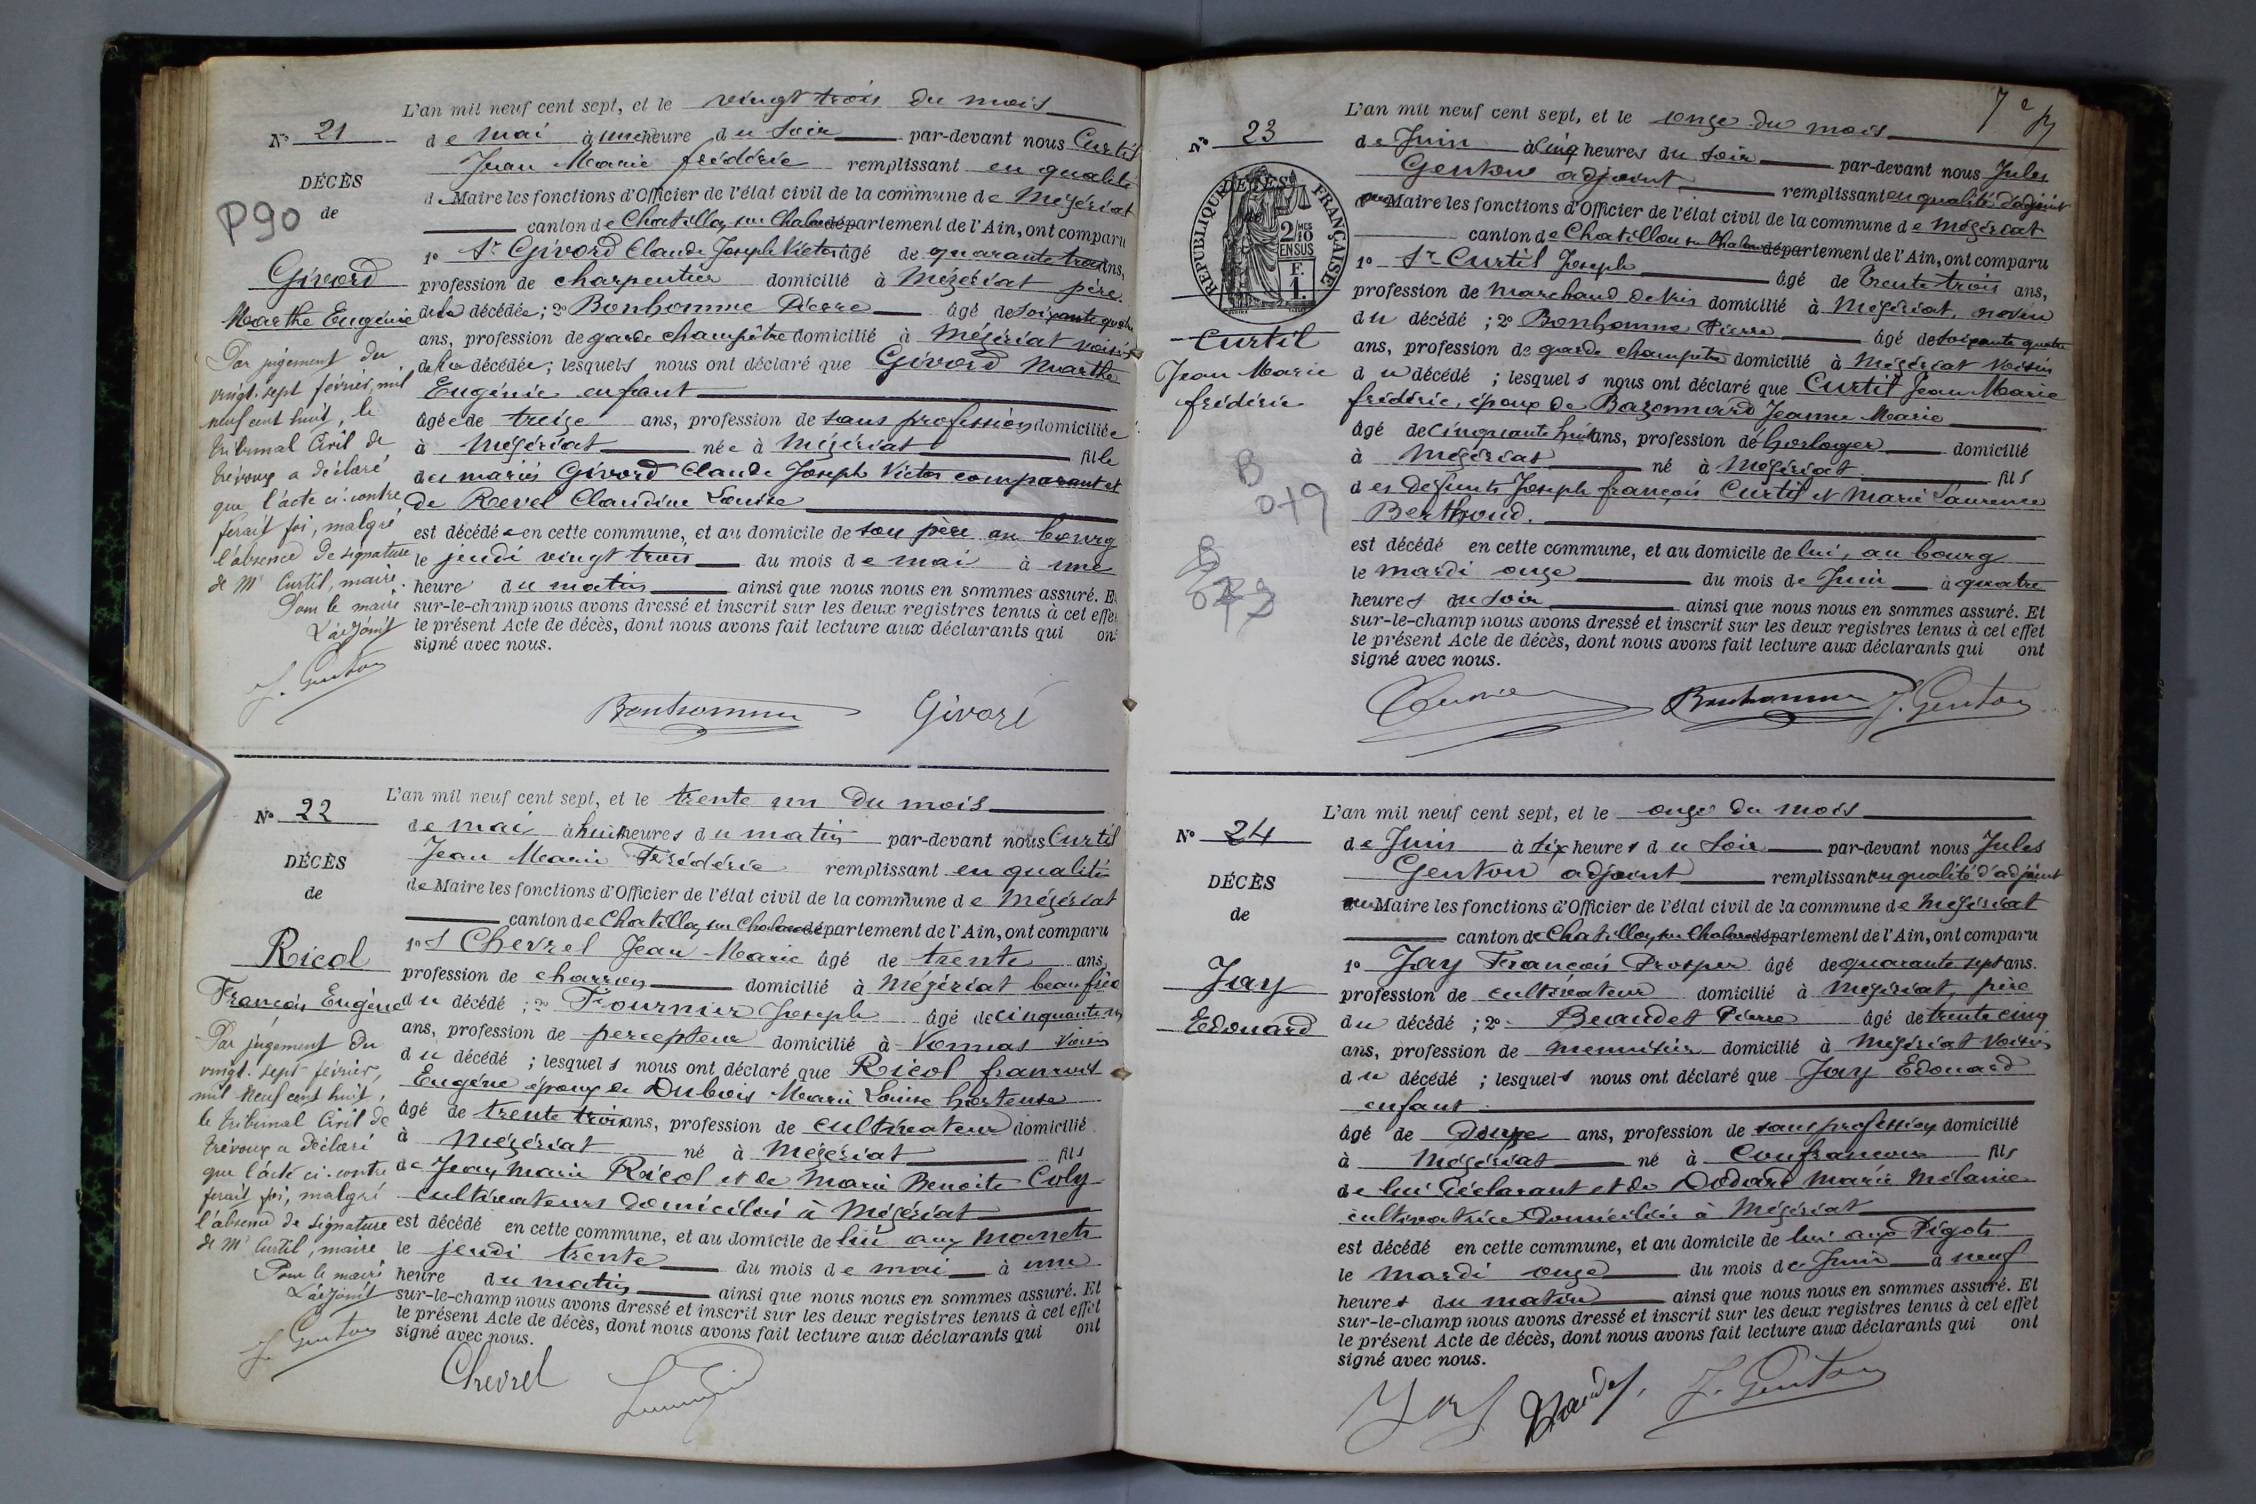 L'an mil neuf cent sept, et le vingt trois du mois
N° 21
de mai à une heure du soir par-devant nous Curtil
Jean Marie frédéric remplissant en qualité
DÉCÈS
de Maire les fonctions d'Officier de l'état civil de la commune de Mézériat
P90
de
canton de Chatillon sur Chalaronne département de l'Ain, ont comparu
1° Sr Givord Claude Joseph Victor âgé de quarante trois ans,
Givord
profession de charpentier domicilié à Mézériat père
Marthe Eugénie
de la décédée; 2° Bonhomme Pierre âgé de soixante quatre
ans, profession de garde champêtre domicilié à Mézériat voisin
de la décédée; lesquels nous ont déclaré que Givord Marthe
Eugénie enfant
âgée de treize ans, profession de sans profession domiciliée
à Mézériat née à Mézériat fille
des mariés Givord Claude Joseph Victor comparant et
de Revel Claudine Louise
est décédée en cette commune, et au domicile de son père au bourg
le jeudi vingt trois du mois de mai à une
heure du matin ainsi que nous nous en sommes assuré. Et
sur-le-champ nous avons dressé et inscrit sur les deux registres tenus à cet effet
le présent Acte de décès, dont nous avons fait lecture aux déclarants qui ont
signé avec nous.
Par jugement du
vingt-sept février, mil
neuf cent huit, le
tribunal Civil de
trévoux a déclaré
que l'acte ci-contre
ferait foi, malgré
l'absence de signature
de Mr Curtil, maire.
Pour le maire
L'adjoint
J. Genton
Bonhomme Givord
L'an mil neuf cent sept, et le trente un du mois
N° 22
de mai à huit heures du matin par-devant nous Curtil
Jean Marie Frédéric remplissant en qualité
DÉCÈS
de Maire les fonctions d'Officier de l'état civil de la commune de Mézériat
de
canton de Chatillon sur Chalaronne département de l'Ain, ont comparu
1° S Chevrel Jean Marie âgé de trente ans,
Ricol
profession de charron domicilié à Mézériat beau frère
François Eugène
du décédé ; 2° Fournier Joseph âgé de cinquante un
ans, profession de percepteur domicilié à Vonnas Voisin
du décédé ; lesquels nous ont déclaré que Ricol françois
Eugène époux de Dubois Marie Louise hortense
âgé de trente trois ans, profession de cultivateur domicilié
à Mézériat né à Mézériat fils
de Jean Marie Ricol et de Marie Benoite Coly
cultivateurs domiciliés à Mézériat
est décédé en cette commune, et au domicile de lui aux
le jeudi trente du mois de mai à une
heure du matin ainsi que nous nous en sommes assuré. Et
sur-le-champ nous avons dressé et inscrit sur les deux registres tenus à cet effet
le présent Acte de décès, dont nous avons fait lecture aux déclarants qui ont
signé avec nous.
Par jugement du
vingt-sept février,
mil neuf cent huit,
le tribunal Civil de
trévoux a déclaré
que l'acte ci-contre
ferait foi, malgré
l'absence de signature
de Mr Curtil, maire
Pour le maire
L'adjoint
J. Genton
Chevrel
7e
L'an mil neuf cent sept, et le onze du mois
N° 23
de Juin à cinq heures du soir par-devant nous Jules
Genton adjoint remplissant en qualité d'adjoint
au Maire les fonctions d'Officier de l'état civil de la commune de Mézériat
canton de Chatillon sur Chalaronne département de l'Ain, ont comparu
RÉPUBLIQUE FRANÇAISE
2/10 MES
EN SUS
F.
1.
1° Sr Curtil Joseph âgé de trente trois ans,
profession de marchand de vin domicilié à Mézériat, neveu
du décédé ; 2° Bonhomme Pierre âgé de soixante quatre
Curtil
Jean Marie
frédéric
ans, profession de garde champêtre domicilié à Mézériat voisin
du décédé ; lesquels nous ont déclaré que Curtil Jean Marie
frédéric, époux de Bazonnard Jeanne Marie
âgé de cinquante huit ans, profession de horloger domicilié
à Mézériat né à Mézériat fils
des défunts Joseph françois Curtil et Marie Laurence
Berthoud.
B
049
est décédé en cette commune, et au domicile de lui, au bourg
le mardi onze du mois de Juin à quatre
heures du soir ainsi que nous nous en sommes assuré. Et
sur-le-champ nous avons dressé et inscrit sur les deux registres tenus à cet effet
le présent Acte de décès, dont nous avons fait lecture aux déclarants qui ont
signé avec nous.
Bonhomme J. Genton
L'an mil neuf cent sept, et le onze du mois
N° 24
de Juin à six heures du soir par-devant nous Jules
Genton adjoint remplissant en qualité d'adjoint
DÉCÈS
au Maire les fonctions d'Officier de l'état civil de la commune de Mézériat
de
canton de Chatillon sur Chalaronne département de l'Ain, ont comparu
1° Jay François Prosper âgé de quarante sept ans.
Jay
profession de cultivateur domicilié à Mézériat, père
Edouard
du décédé ; 2° Beaudet Pierre âgé de trente cinq
ans, profession de menuisier domicilié à Mézériat Voisin
du décédé ; lesquels nous ont déclaré que Jay Edouard
enfant
âgé de douze ans, profession de sans profession domicilié
à Mézériat né à Confrançon fils
de lui déclarant et de Marie Mélanie
cultivatrice domiciliée à Mézériat
est décédé en cette commune, et au domicile de lui aux Pigots
le mardi onze du mois de Juin à neuf
heures du matin ainsi que nous nous en sommes assuré. Et
sur-le-champ nous avons dressé et inscrit sur les deux registres tenus à cet effet
le présent Acte de décès, dont nous avons fait lecture aux déclarants qui ont
signé avec nous.
Jay Beaudet J. Genton